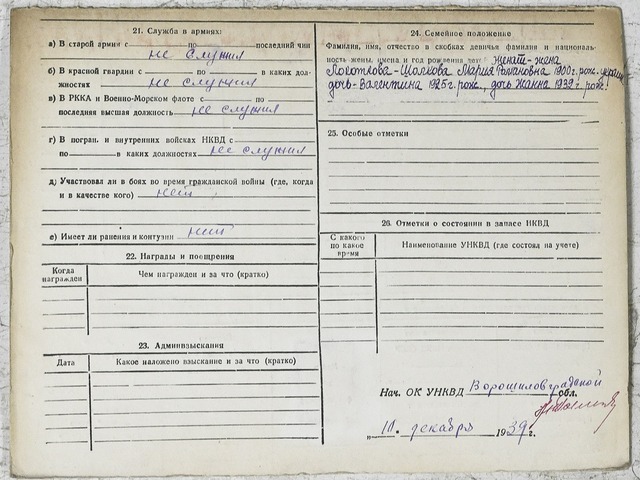 21. Служба в армиях:
а) В старой армии с по последний чин
не служил
б) В красной гвардии с по в каких дол-
жностях не служил
в) В РККА и Военно-Морском флоте с по
последняя высшая должность не служил
г) В погран. и внутренних войсках НКВД с
по в каких должностях не служил
д) Участвовал ли в боях во время гражданской войны (где, когда
и в качестве кого) нет
е) Имеет ли ранения и контузии нет
22. Награды и поощрения
Когда награжден
Чем награжден и за что (кратко)
23. Админвзыскания
Дата
Какое наложено взыскание и за что (кратко)
24. Семейное положение
Фамилия, имя, отчество в скобках девичья фамилия и националь-
ность жены, имена и год рождения женат - жена
Мария Романовна 1900 г. рож.
дочь - Валентина 1925 г. рож., дочь Жанна 1939 г. рож.
25. Особые отметки
26. Отметки о состоянии в запасе НКВД
С какого по какое время
Наименование УНКВД (где состоял на учете)
Нач. ОК УНКВД Ворошиловградской обл.
„ 10. декабря 1939 г.